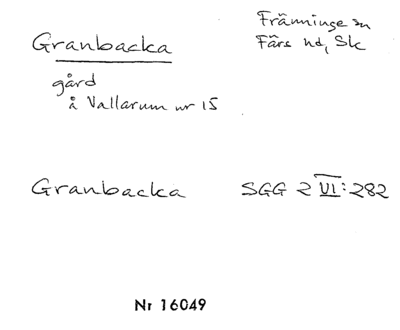 Granbacka
Fränninge sn
Färs hd, Sk
gård
å Vallarum nr 15
Granbacka SGG 2 VI:282
Nr 16049